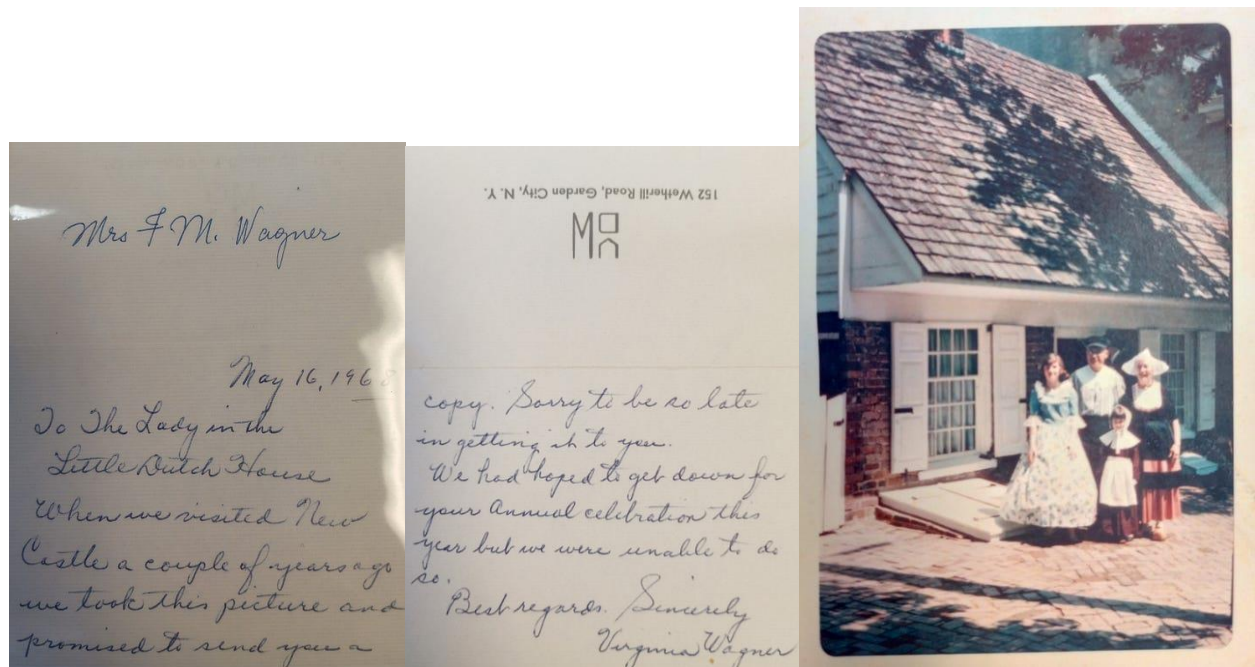 Mrs F M. Wagner
May 16, 1968
To The Lady in the
Little Dutch House
When we visited New
Castle a couple of years ago
we took this picture and
promised to send you a
152 Wetherill Road, Garden City, N. Y.
copy. Sorry to be so late
in getting it to you.
We had hoped to get down for
your Annual celebration this
year but we were unable to do
so.
Best regards. Sincerely
Virginia Wagner